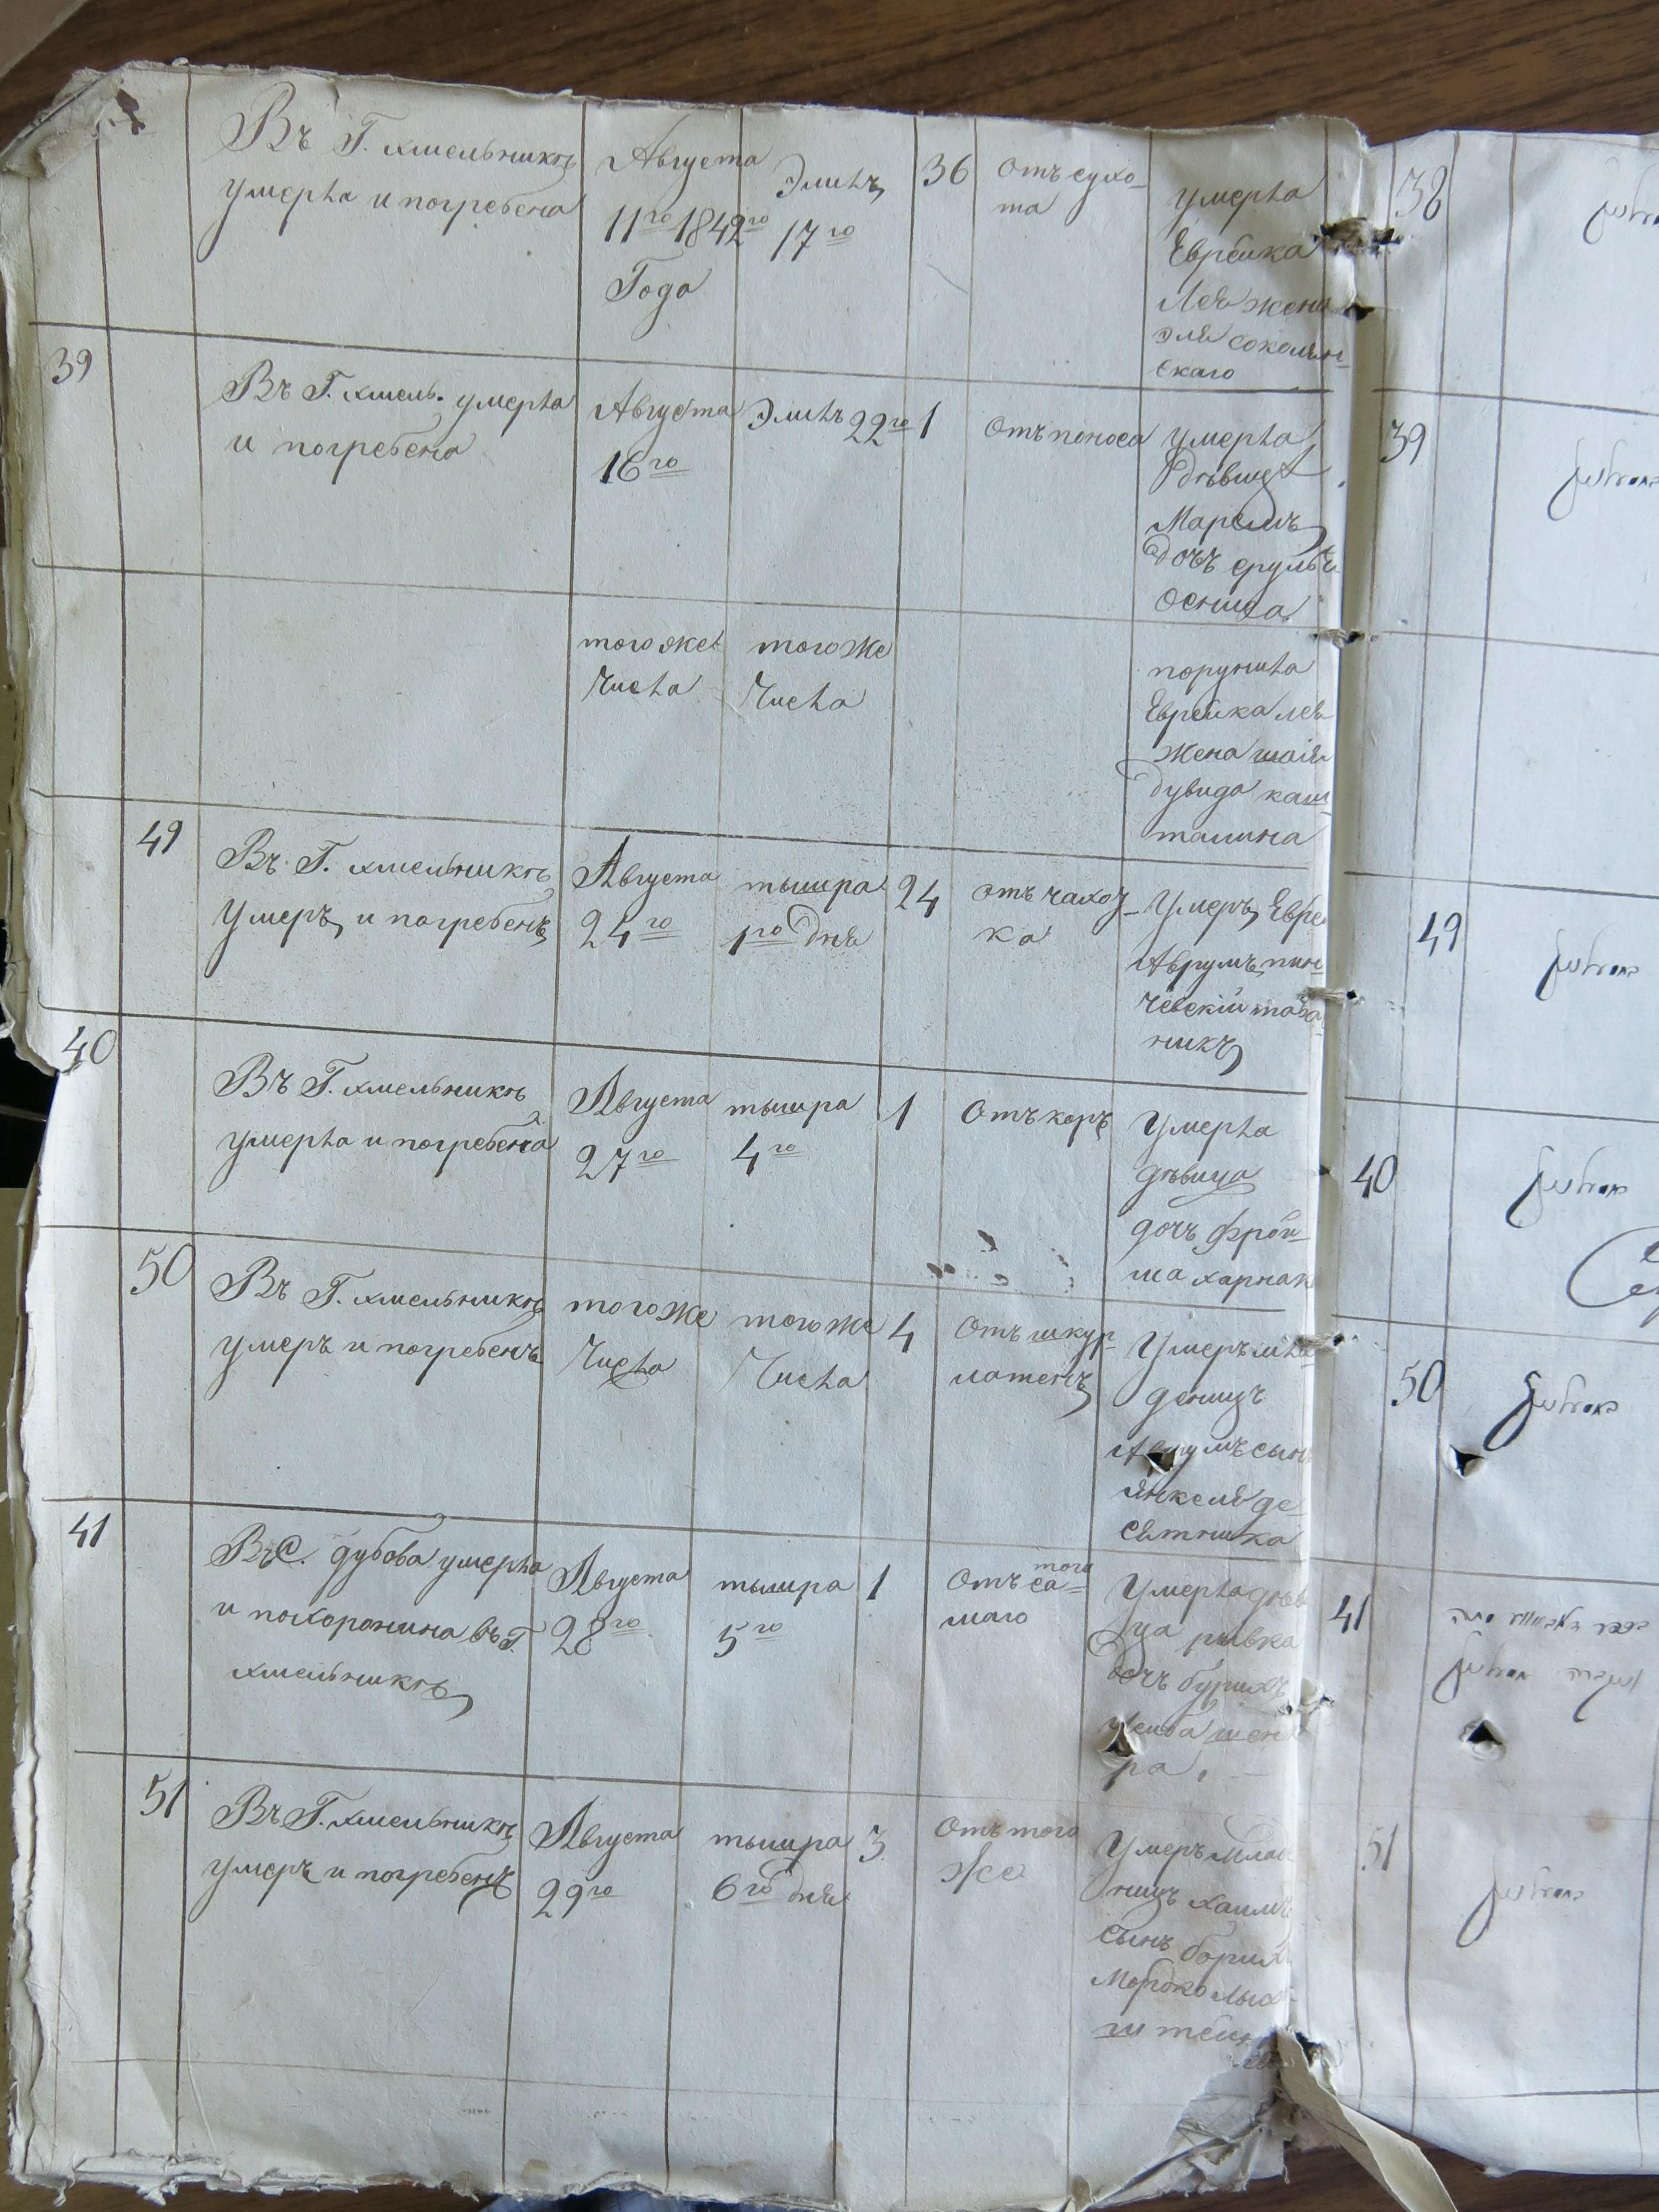 Въ Г. хмельникѣ
умерла и погребена
Августа
11го 1842го
Года
Элилъ
17го
36
отъ сухо-
та
умерла
Еврейка
Лея жена
эля соколин-
скаго
38
39
Въ Г. хмель. умерла
и погребена
Августа
16го
Элилъ 22го
1
отъ поноса
умерла
дѣвица
Маремъ
дочъ срулья
осница
39
того же
Числа
того же
Числа
порунила
Еврейка лея
жена шоiя
дувида каш
талина
49
Въ Г. хмельникѣ
умеръ и погребенъ
Августа
24го
тышра
1го дня
24
отъ чахоч-
ка
Умеръ Евре
Аврумъ пин-
чевскiй таба-
никъ
49
40
Въ Г. хмельникѣ
умерла и погребена
Августа
27го
тышра
4го
1
Отъ коръ
Умерла
дѣвица
дочъ фрой-
ма харнак
40
50
Въ Г. хмельникѣ
умеръ и погребенъ
того же
Числа
того же
Числа
4
Отъ шкур-
латенъ
Умеръ мла
денцъ
Аврумъ сынъ
янкеля де
сятника
50
41
Въ С. дубова умерла
и похоронина въ Г.
хмельникѣ
Августа
28го
тышра
5го
1
Отъ того
са=
маго
Умерла дѣв
ца рывка
дочъ бурихъ
шенк
ра.
41
51
Въ Г. хмельникѣ
умеръ и погребенъ
Августа
29го
тышра
6го дня
3
Отъ того
же
Умеръ млад
ницъ хаимъ
сынъ борих
Мордко
51